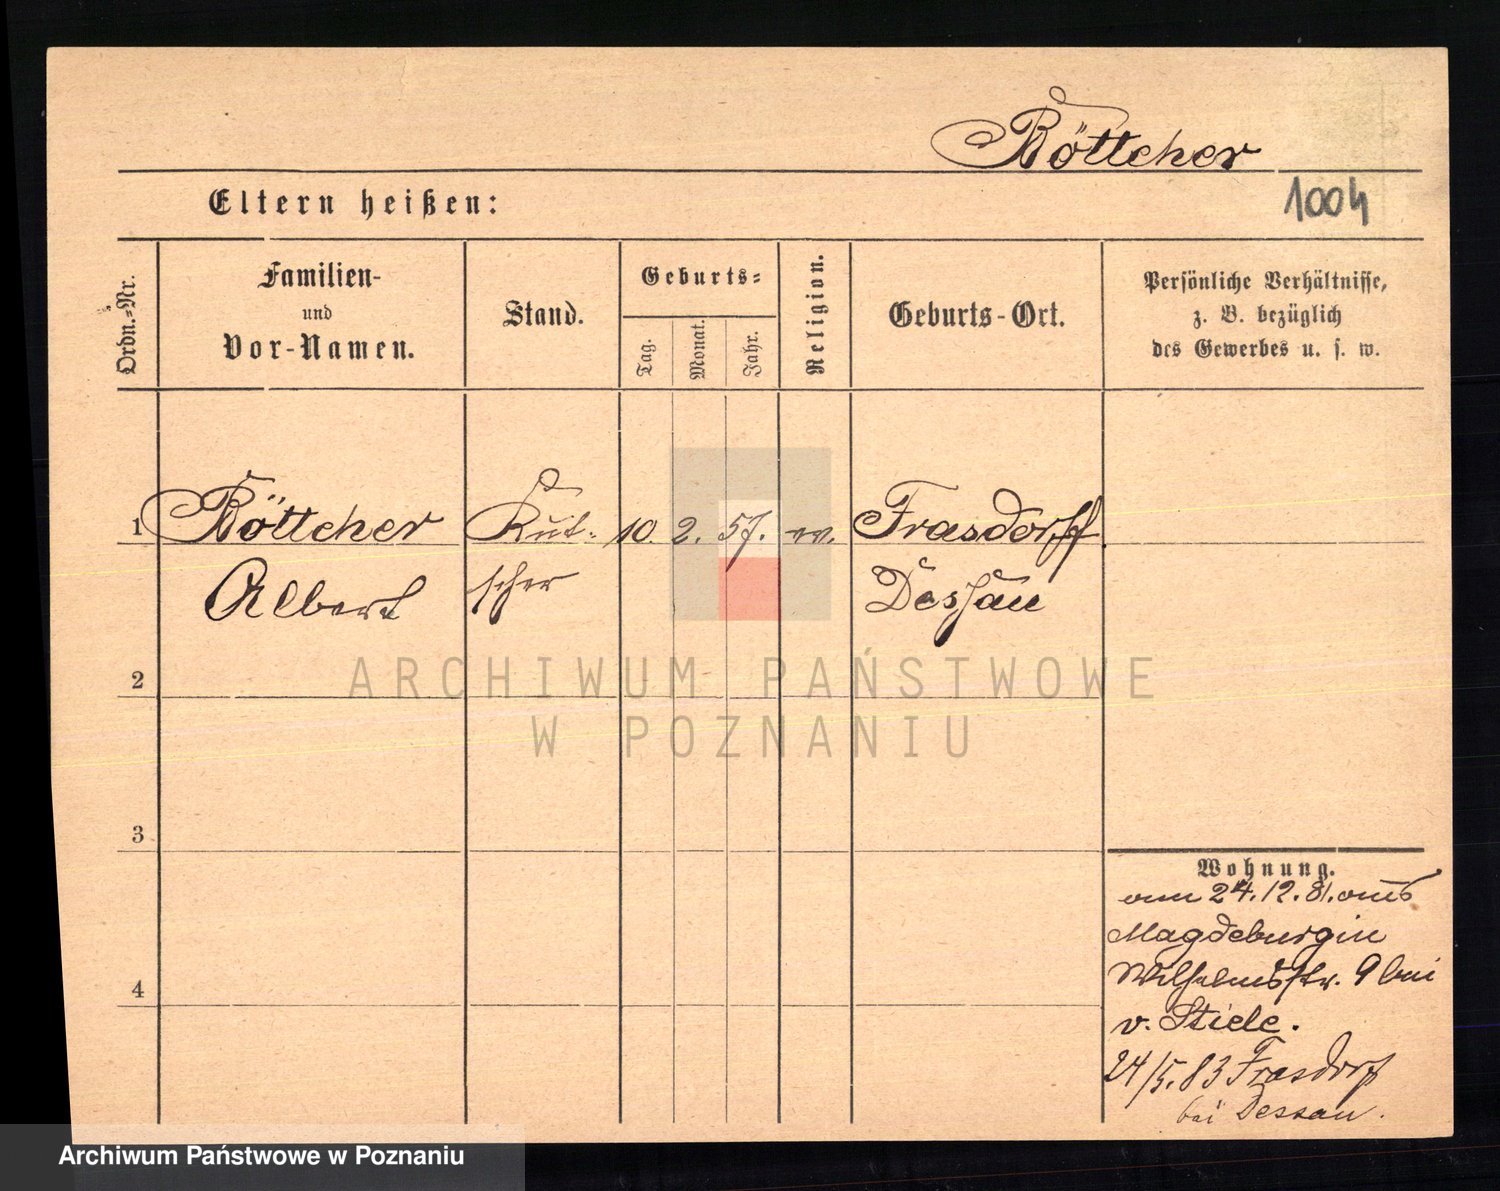 Böttcher
1004
Eltern heißen:
Ordn.-Nr.
Familien-
und
Vor-Namen.
Stand.
Geburts-
Tag.
Monat.
Jahr.
Religion.
Geburts-Ort.
Persönliche Verhältnisse,
z. B. bezüglich
des Gewerbes u. s. w.
1 Böttcher Kut- 10. 2. 57. ev. Frasdorff
Albert scher Dessau
2
ARCHIWUM PAŃSTWOWE
W POZNANIU
3
4
Wohnung.
24.12.81. aus
Magdeburg in
Wilhelmsstr. 9 bei
v. Stiele.
24/5.83 Frasdorf
bei Dessau.
Archiwum Państwowe w Poznaniu